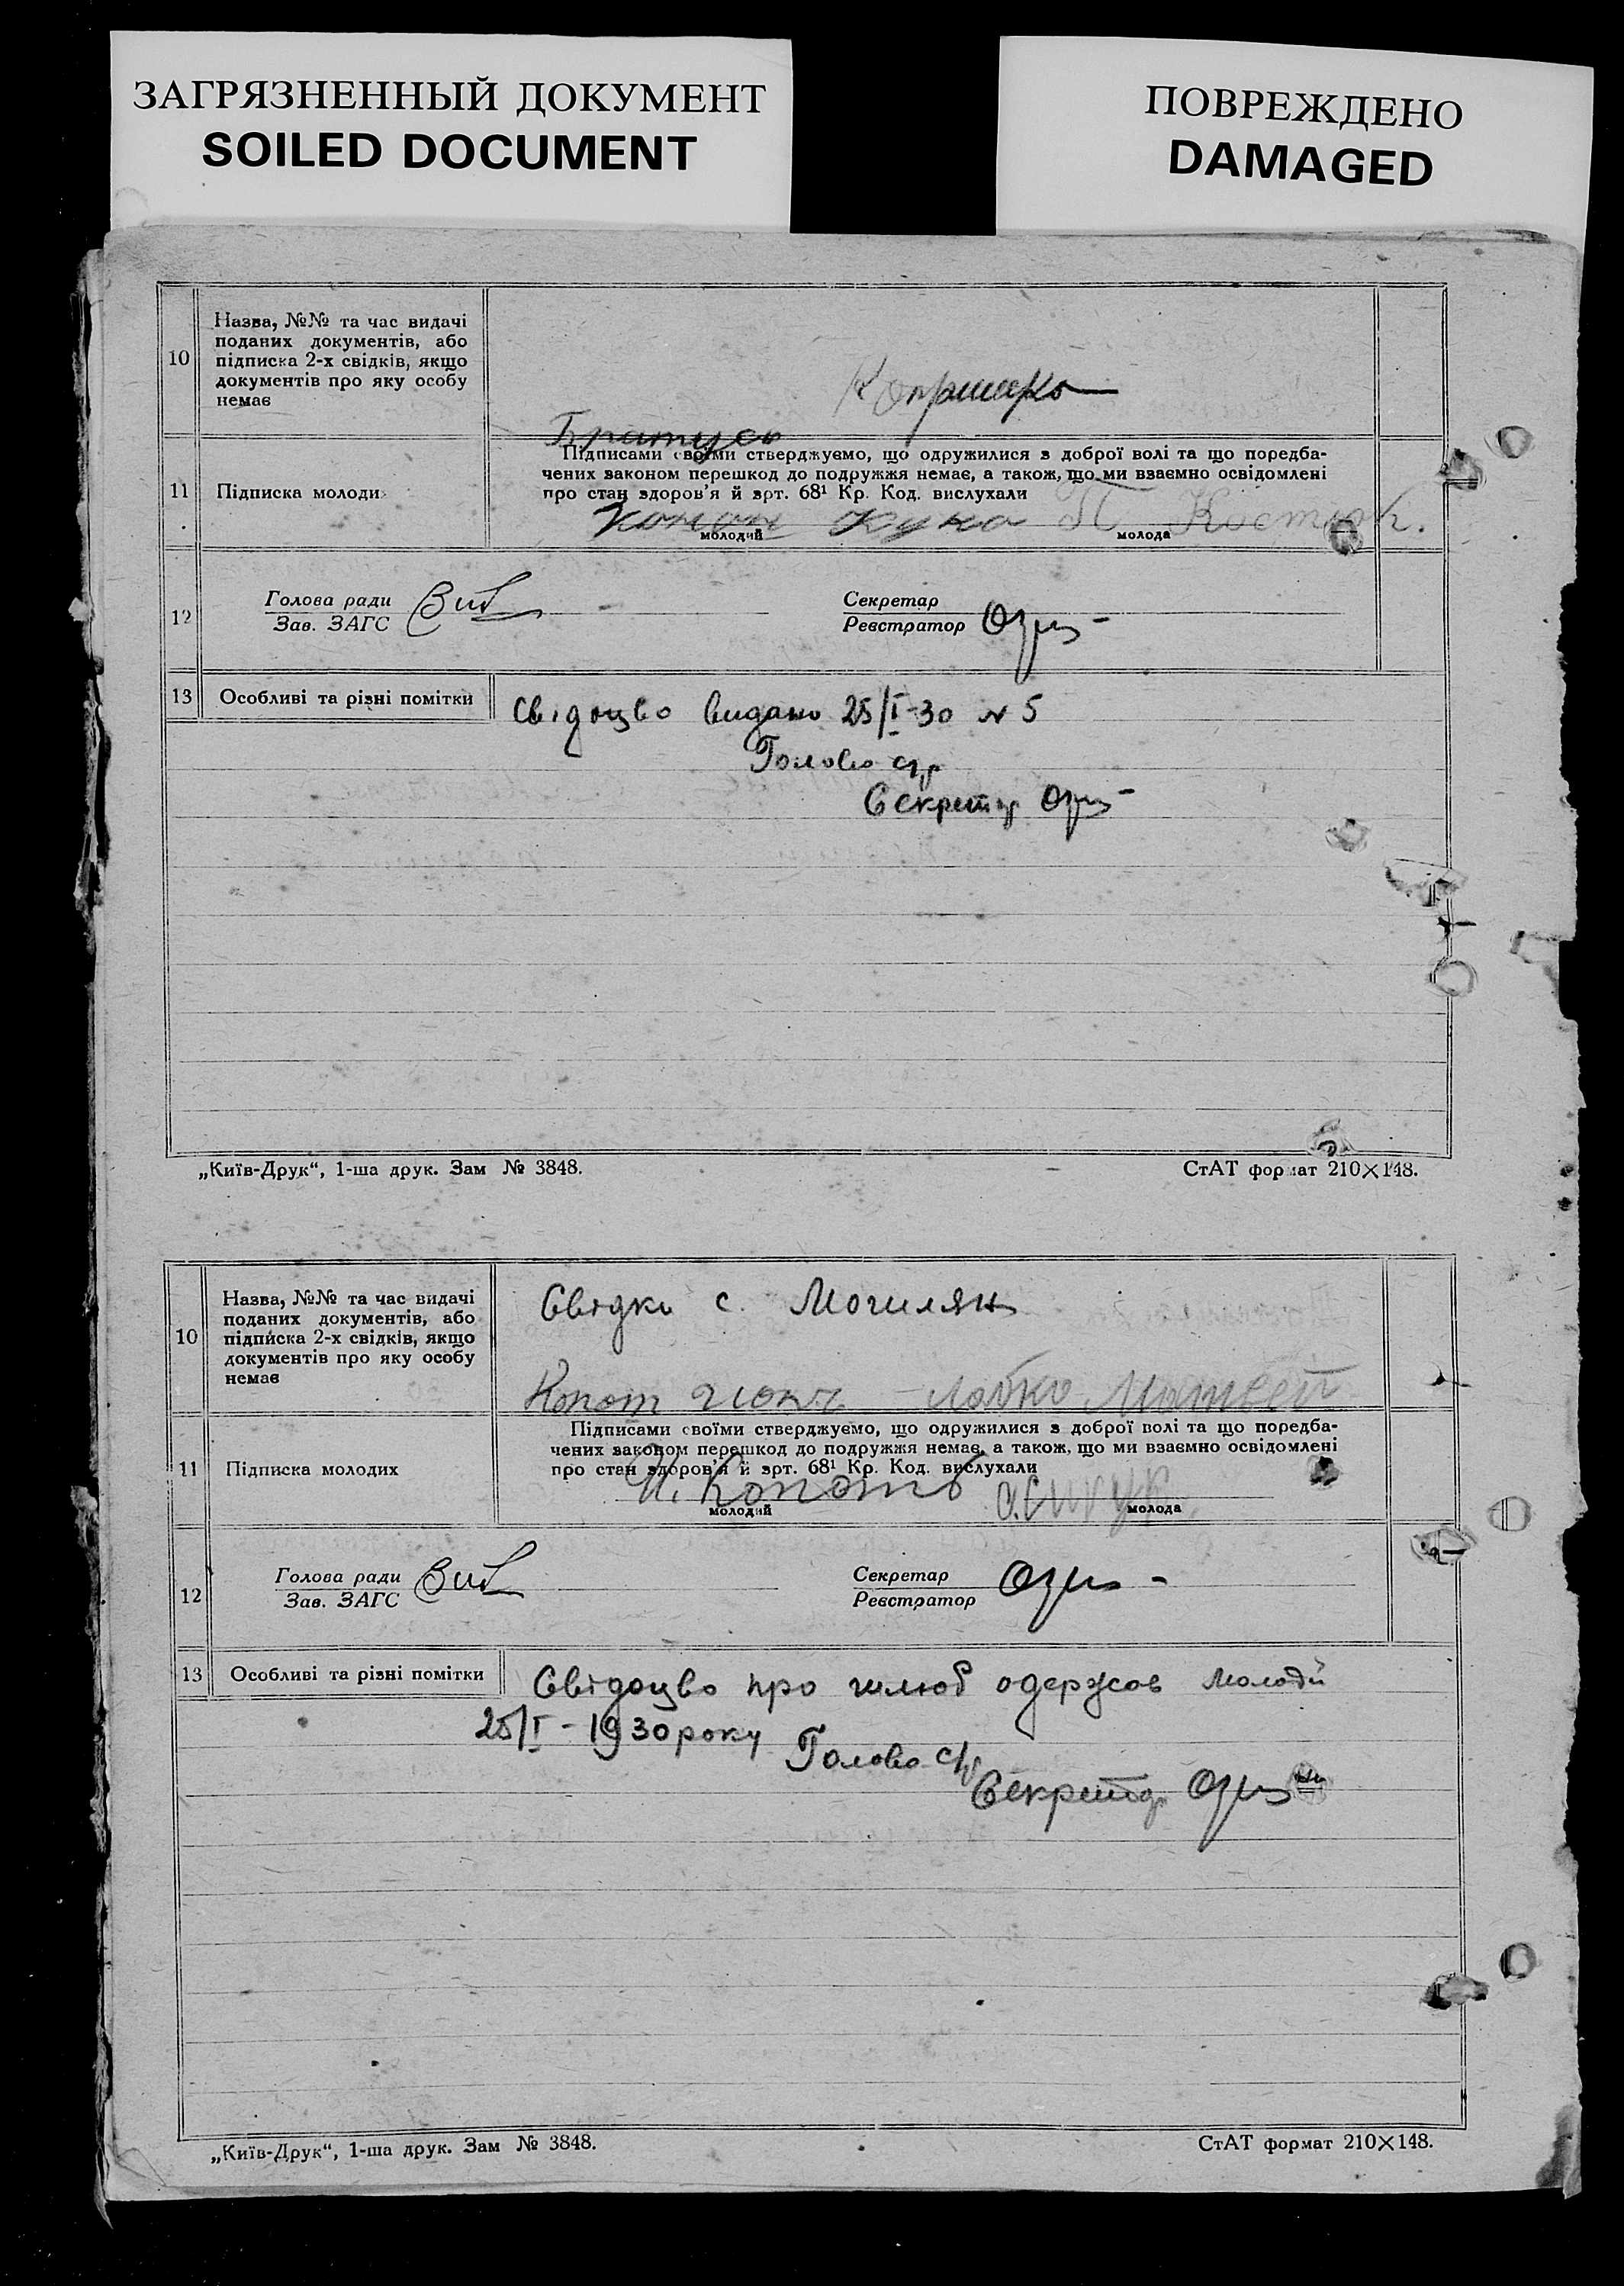 ЗАГРЯЗНЕННЫЙ ДОКУМЕНТ
SOILED DOCUMENT
ПОВРЕЖДЕНО
DAMAGED
10
Назва, №№ та час видачі
поданих документів, або
підписка 2-х свідків, якщо
документів про яку особу
немає
Братусь
11
Підписка молоди
Підписами своїми стверджуємо, що одружилися з доброї волі та що поредба-
чених законом перешкод до подружжя немає, а також, що ми взаємно освідомлені
про стан здоров'я й арт. 68¹ Кр. Код. вислухали
П Костюк.
молодий
молода
12
Голова ради
Зав. ЗАГС
Секретар
Реєстратор
13
Особливі та різні помітки
Свідоцво видано 25/I-30 N 5
Голова с/р
Секретар
„Київ-Друк“, 1-ша друк. Зам № 3848.
СтАТ формат 210×148.
10
Назва, №№ та час видачі
поданих документів, або
підписка 2-х свідків, якщо
документів про яку особу
немає
Свідки с. Могиляни
Копот Лабко Матвей
11
Підписка молодих
Підписами своїми стверджуємо, що одружилися з доброї волі та що поредба-
чених законом перешкод до подружжя немає, а також, що ми взаємно освідомлені
про стан здоров'я й арт. 68¹ Кр. Код. вислухали
молодий
молода
12
Голова ради
Зав. ЗАГС
Секретар
Реєстратор
13
Особливі та різні помітки
Свідоцво про шлюб одержав молодий
25/I-1930 року
Голова с/р
Секретар
„Київ-Друк“, 1-ша друк. Зам № 3848.
СтАТ формат 210×148.